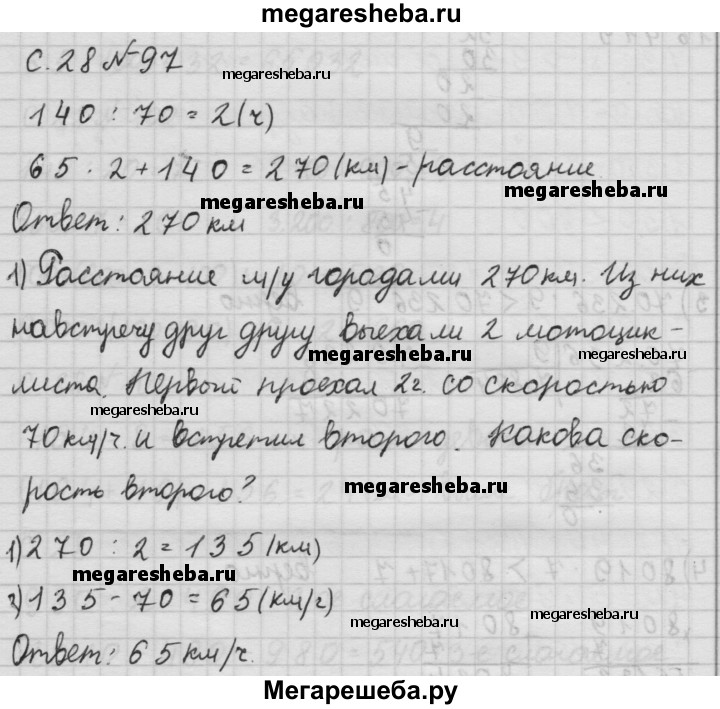 megaresheba.ru
с. 28 № 97
megaresheba.ru
140 : 70 = 2 (ч)
65 · 2 + 140 = 270 (км) - расстояние
megaresheba.ru
megaresheba.ru
Ответ: 270 км
1) Расстояние м/у городами 270 км. Из них
навстречу друг другу выехали 2 мотоцик-
megaresheba.ru
megaresheba.ru
листа. Первый проехал 2ч. со скоростью
megaresheba.ru
70 км/ч. и встретил второго. Какова ско-
рость второго?
megaresheba.ru
1) 270 : 2 = 135 (км)
megaresheba.ru
2) 135 - 70 = 65 (км/ч)
megaresheba.ru
megaresheba.ru
Ответ: 65 км/ч.
Мегарешеба.ру